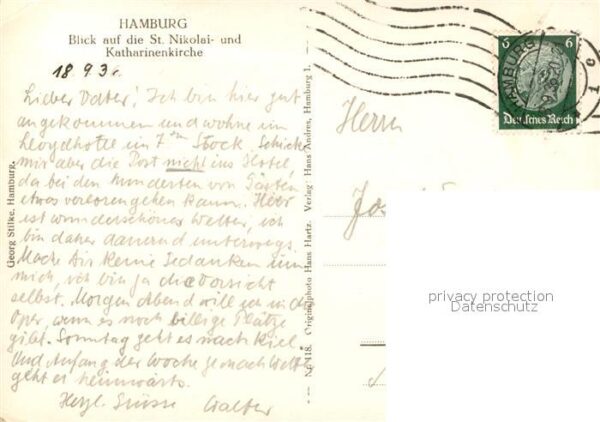 HAMBURG
Blick auf die St. Nikolai- und
Katharinenkirche
18.9.3
Lieber Vater! Ich bin hier gut
angekommen und wohne im
Lloydhotel im 7ten Stock. Schicke
mir aber die Post nicht ins Hotel
da bei den Hunderten von Gästen
etwas verloren gehen kann. Hier
ist wunderschönes Wetter, ich
bin daher dauernd unterwegs.
Mache dir keine Gedanken um
mich, ich bin ja die Vorsicht
selbst. Morgen Abend will ich in die
Oper, wenn es noch billige Plätze
gibt. Sonntag geht es nach Kiel
und Anfang der Woche je nach Wetter
geht es heimwärts.
Herzl. Grüsse Walter
Georg Stilke, Hamburg.
Nr. 418. Originalphoto Hans Hartz. Verlag: Hans Andres, Hamburg 1.
Herrn
Jos
6 6
Deutsches Reich
HAMBURG
privacy protection
Datenschutz